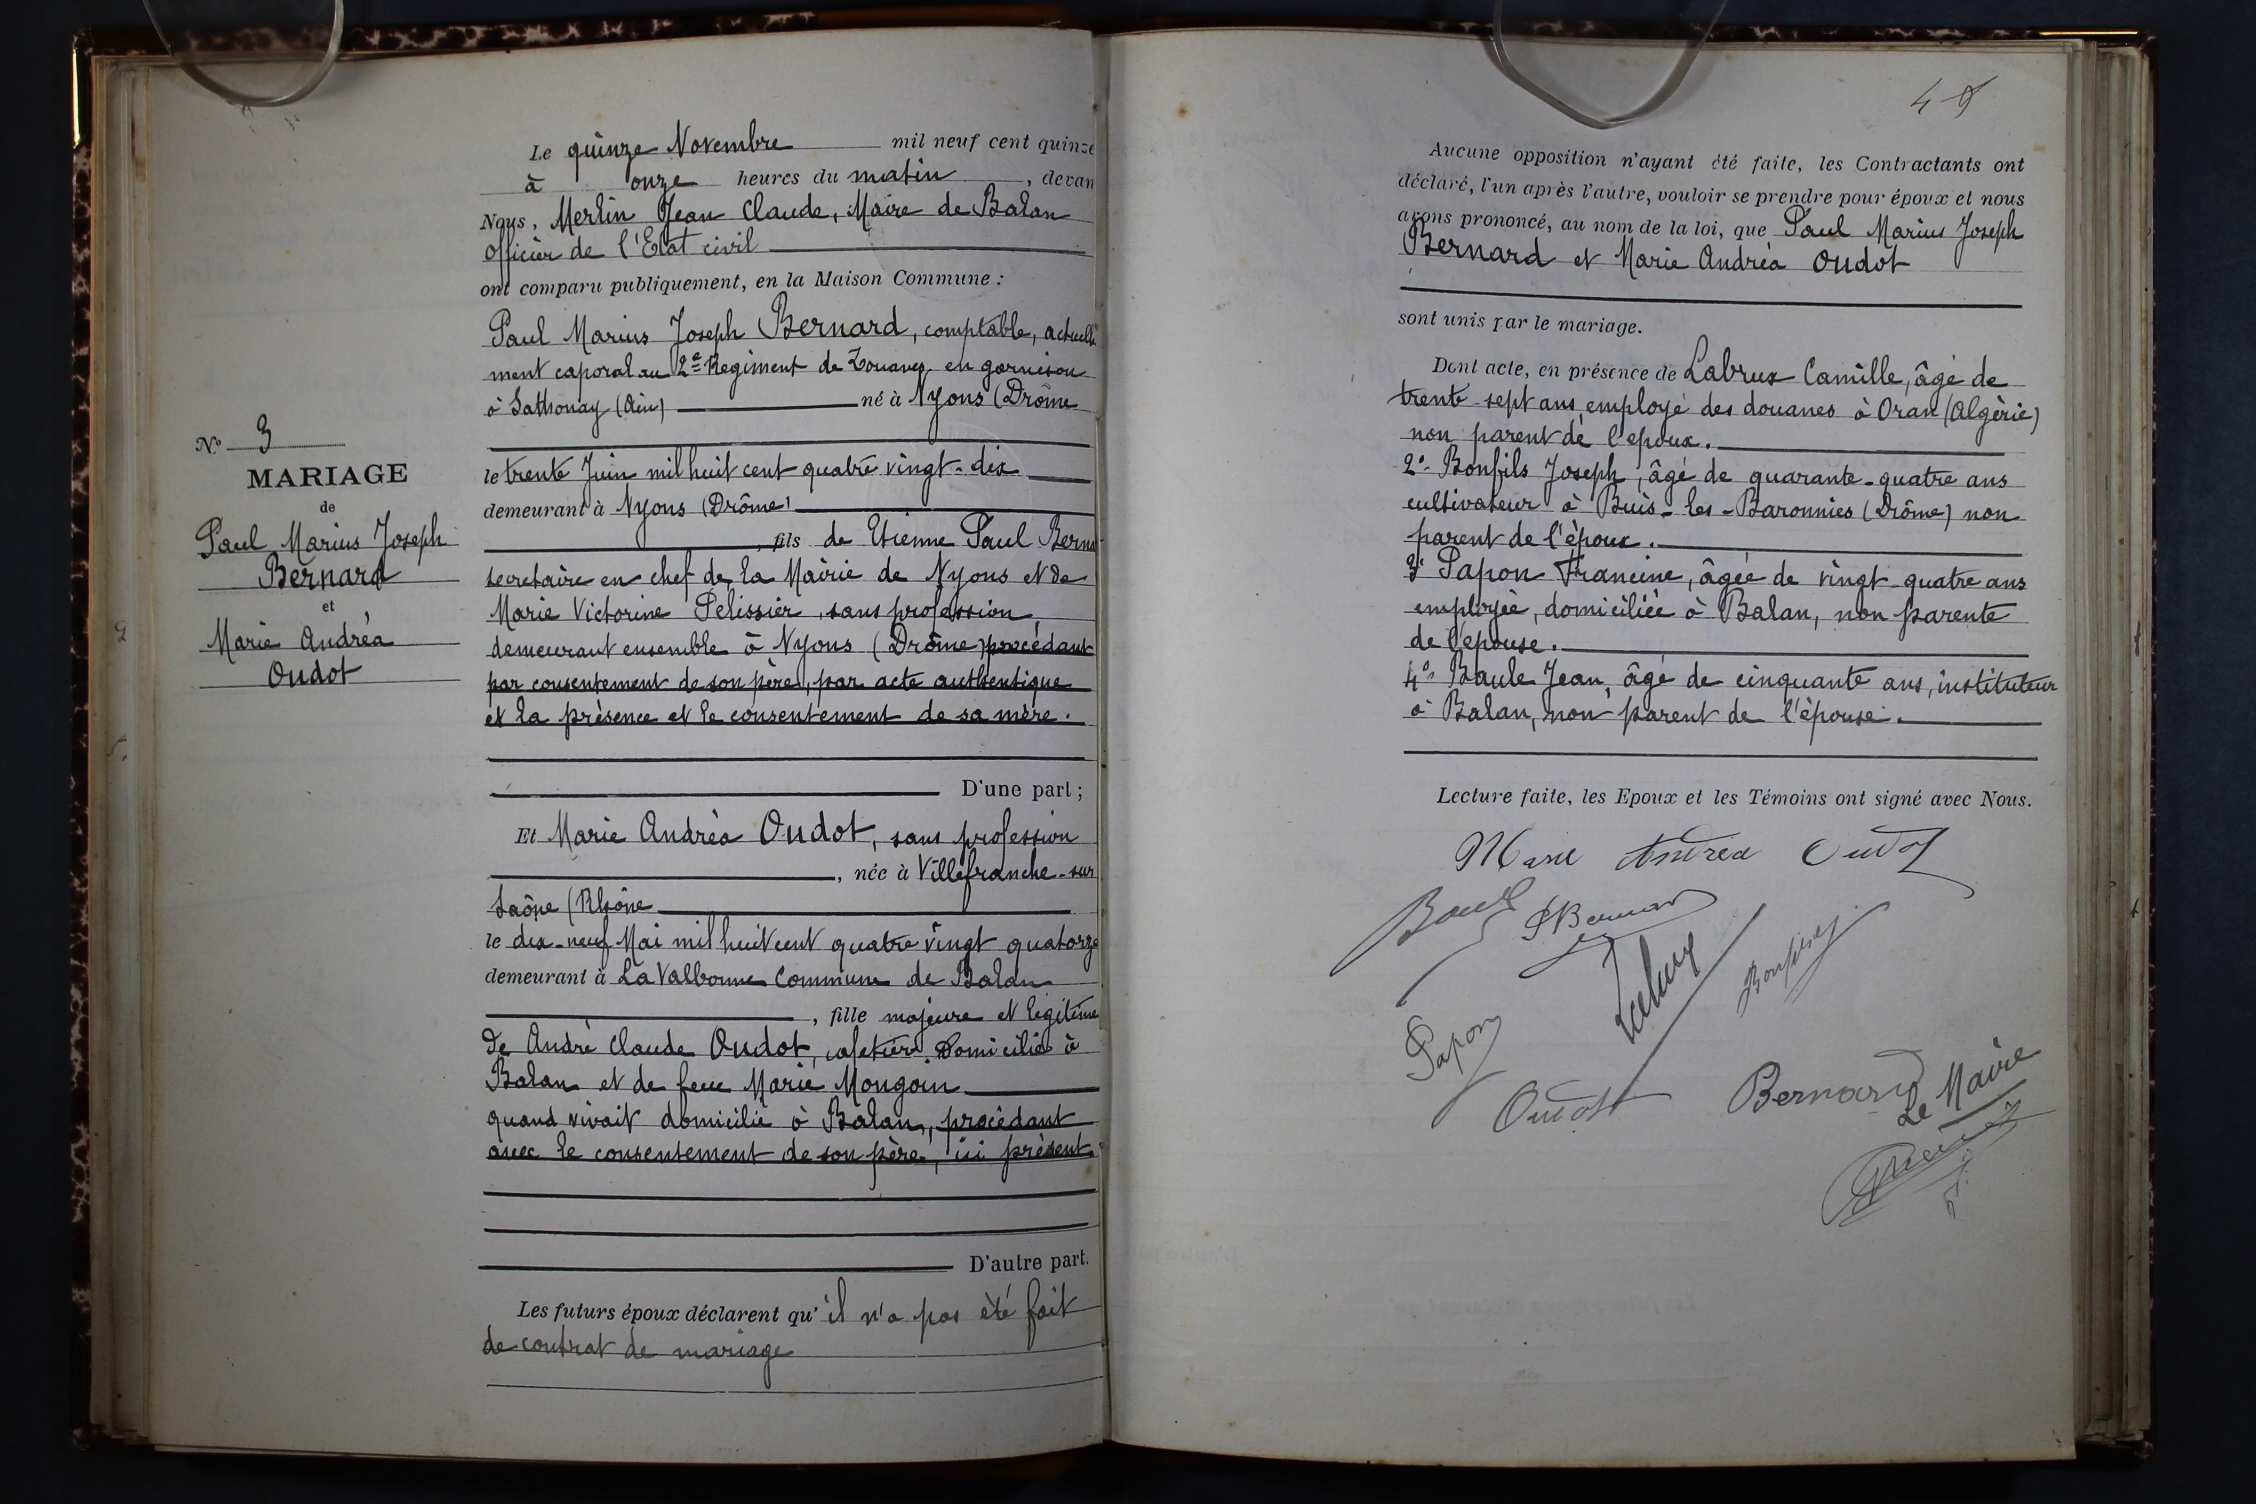 Le quinze Novembre mil neuf cent quinze
à onze heures du matin, devan
Nous, Merlin Jean Claude, Maire de Balan
officier de l'Etat civil
ont comparu publiquement, en la Maison Commune :
Paul Marius Joseph Bernard, comptable, actuelle
ment caporal au 2e Regiment de Zouaves en garnison
à Sathonay (Ain) né à Nyons (Drôme
le trente Juin mil huit cent quatre vingt-dix
demeurant à Nyons (Drôme)
, fils de Etienne Paul Berna
secretaire en chef de la Mairie de Nyons et de
Marie Victorine Pelissier, sans profession,
demeurant ensemble à Nyons (Drôme) procédant
par consentement de son père, par acte authentique
et la présence et le consentement de sa mère.
D'une part ;
Et Marie Andréa Oudot, sans profession
, née à Villefranche-sur
Saône (Rhône
le dix-neuf Mai mil huit cent quatre vingt quatorze
demeurant à La Valbonne Commune de Balan
, fille majeure et légitime
de André Claude Oudot, cafetier domicilié à
Balan et de feue Marie Mongoin
quand vivait domicilié à Balan, procédant
avec le consentement de son père, ici présent.
D'autre part.
Les futurs époux déclarent qu'il n'a pas été fait
de contrat de mariage
No 3
MARIAGE
de
Paul Marius Joseph
Bernard
et
Marie Andréa
Oudot
Aucune opposition n'ayant été faite, les Contractants ont
déclaré, l'un après l'autre, vouloir se prendre pour époux et nous
avons prononcé, au nom de la loi, que Paul Marius Joseph
Bernard et Marie Andréa Oudot
sont unis par le mariage.
Dont acte, en présence de Labrux Camille, âgé de
trente-sept ans, employé des douanes à Oran (Algérie)
non parent de l'époux.
2°- Bonfils Joseph, âgé de quarante-quatre ans
cultivateur à Buis-les-Baronnies (Drôme) non
parent de l'époux.
3° Papon Francine, âgée de vingt-quatre ans
employée, domiciliée à Balan, non parente
de l'épouse.
4°- Baule Jean, âgé de cinquante ans, instituteur
à Balan, non parent de l'épouse.
Lecture faite, les Epoux et les Témoins ont signé avec Nous.
Marie Andréa Oudot
Baule PBernard
Bonfils
Papon
Oudot Bernard
Le Maire